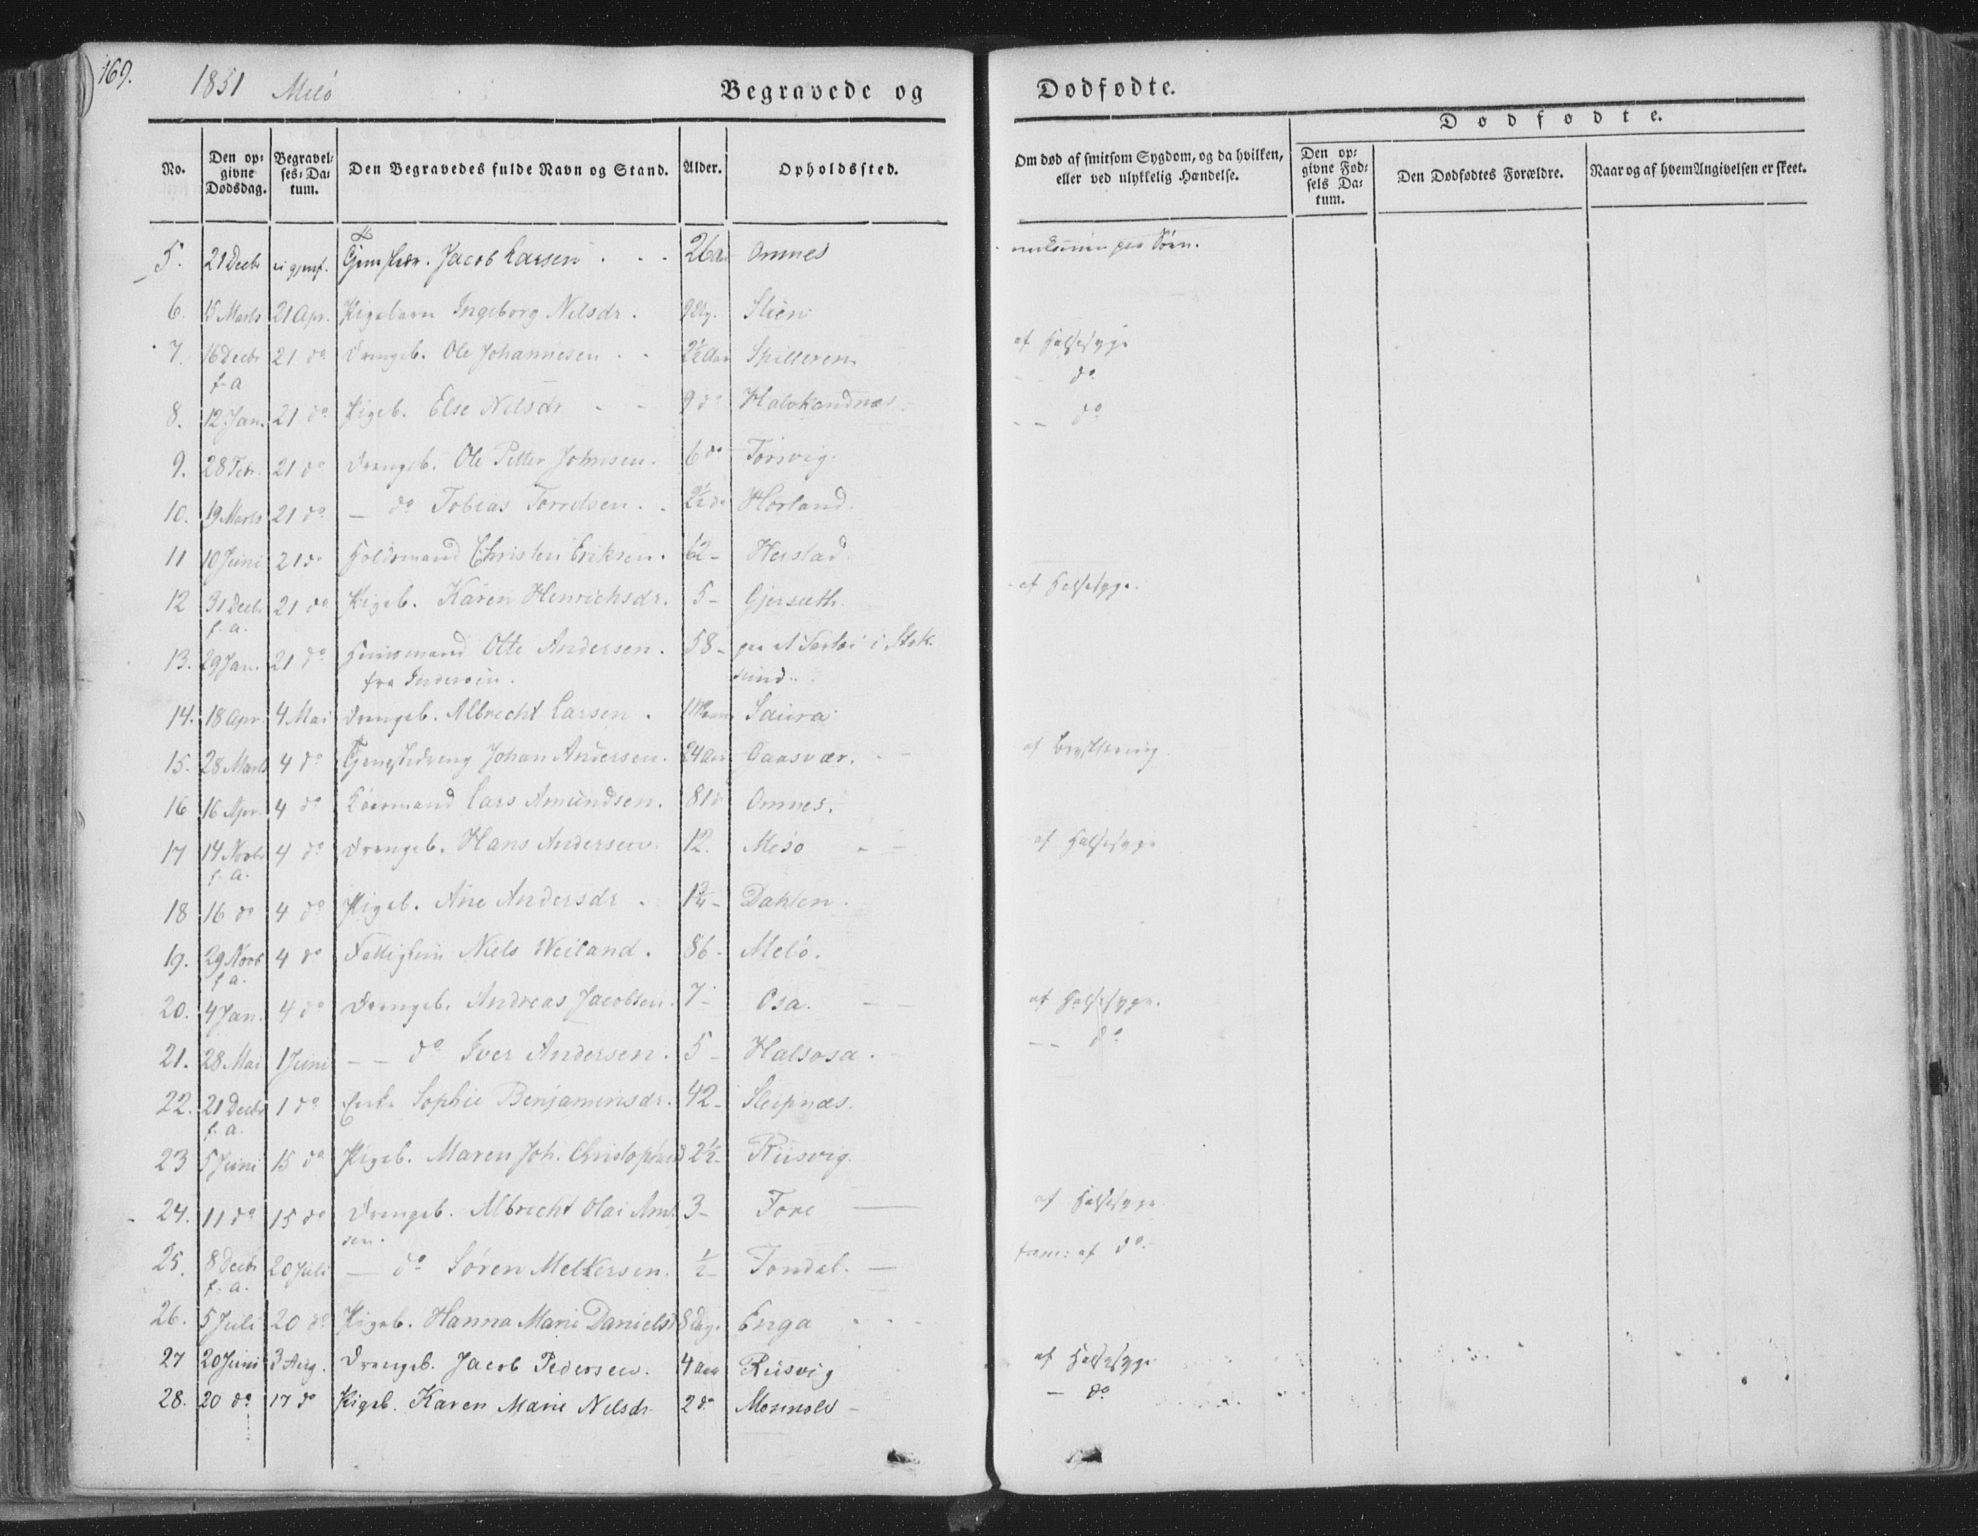 169.
1851 Melö
Begravede og Dødfødte.
Dødfødte.
No.
Den opgivne Dødsdag.
Begravelses-Datum.
Den Begravedes fulde Navn og Stand.
Alder.
Opholdssted.
Om død af smitsom Sygdom, og da hvilken, eller ved ulykkelig Hændelse.
Den opgivne Fødsels Datum.
Den Dødfødtes Forældre.
Naar og af hvem Angivelsen er skeet.
5. 21 Decbr Jacob Larsen 26 Omnes
6. 15 Marts 21 Apr. Pigebarn Ingeborg Nilsdr. Stien
7. 16 Decbr f. a 21 do Drengeb. Ole Johannesen 2½ Aar Spilleren af Halssyge
8. 12 Jan. 21 do Pigeb. Else Nilsdr 9 do do
9. 28 Febr. 21 do Drengeb. Ole Petter Johnsen. 6 do Torsvig. do
10. 19 Marts 21 do — do Tobias 2½ do Horland.
11 10 Juni 21 do Christen Eriksen. 62 - Herstad.
12 31 Decbr f. a. 21 do Pigeb. Karen Henrichsdr. 5 - Gjerseth. af Halssyge.
13. 29 Jan. 21 do Huusmand Otte Andersen. fra Inderöen. 58 - i Stoksund.
14. 18 Apr. 4 Mai Drengeb. Albrecht Larsen. Saura
15. 28 Marts 4 do Johan Andersen. 24 Aar Gaasvær. af
16 16 Apr. 4 do Lars Amundsen. 81 do Omnes.
17 14 Novbr f. a. 4 do Drengeb. Hans Andersen 12. Mesö af Halssyge
18 16 do 4 do Pigeb. Ane Andersdr Dahlen.
19. 29 Novbr f a. 4 do Niels Weiland. 86 - Melö.
20. 4 Jan. 4 do Drengeb. Andreas Jacobsen. 7 - Osa. af Halssyge.
21. 28 Mai 1 Juni — — do Iver Andersen. 5 - Halsosa. — — do
22. 21 Decbr f. a. 1 do Enke Sophie Benjaminsdr. 42 - Sleipnæs.
23 5 Juni 15 do Pigeb. Maren Joh. 2½ - Riisvig.
24. 11 do 15 do Drengeb. Albrecht Olai sen. 3 - Fore af Halssyge
25. 8 Decbr f. a. 20 Juli — do Søren Melkersen. ½ - Fondal. af do.
26. 5 Juli 20 do Pigeb. Hanna Marie 8 Dag. Enga
27 20 Juni 3 Aug. Drengeb. Jacob Pedersen. 4 Aar Riisvig af Halssyge
28. 20 do 17 do Pigeb. Karen Marie Nilsdr 2 do — do